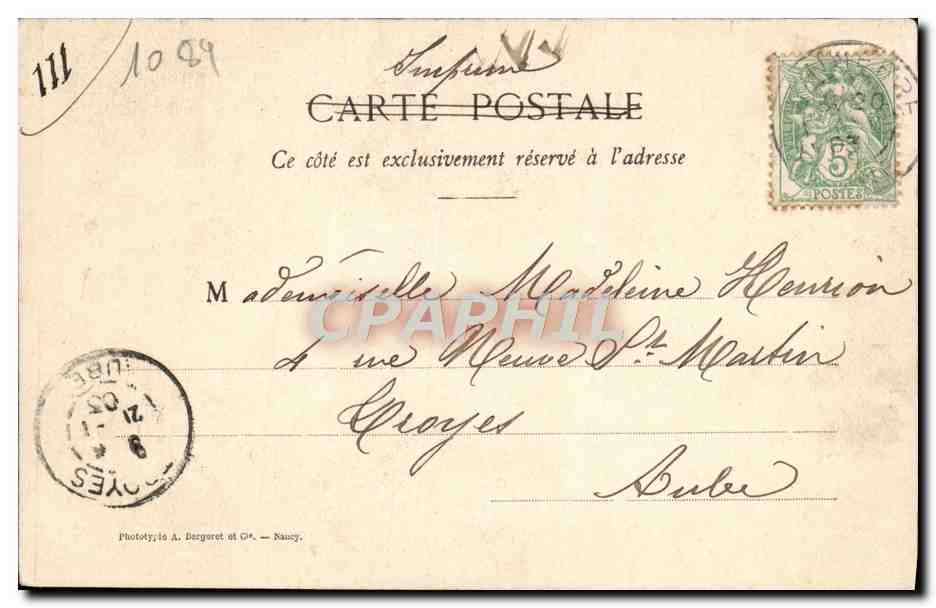 111
1089
Imprimé
CARTE POSTALE
Ce côté est exclusivement réservé à l'adresse
5
POSTES
Mademoiselle Madeleine Henrion
CPAPHIL
4 rue Neuve St. Martin
Troyes
Aube
TROYES
AUBE
21
03
Phototypie A. Bergeret et Cie. — Nancy.